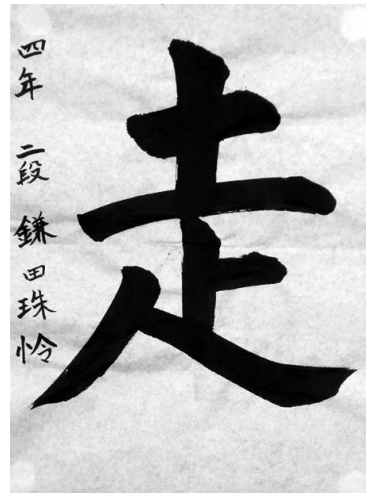 走
四年 二段 鎌田珠怜